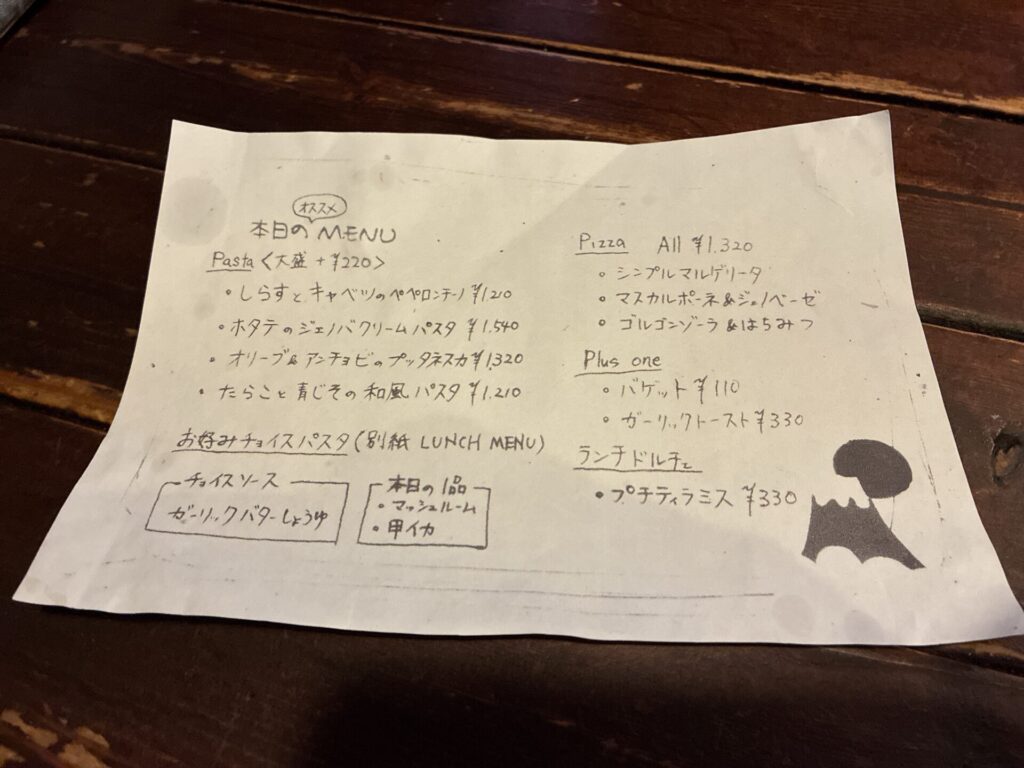 オススメ
本日の MENU
Pasta <大盛 + ¥220>
・しらすとキャベツのペペロンチーノ ¥1,210
・ホタテのジェノバクリームパスタ ¥1,540
・オリーブ&アンチョビのプッタネスカ ¥1,320
・たらこと青じその和風パスタ ¥1,210
お好みチョイスパスタ (別紙 LUNCH MENU)
チョイスソース
ガーリックバターしょうゆ
本日の1品
・マッシュルーム
・甲イカ
Pizza All ¥1,320
・シンプルマルゲリータ
・マスカルポーネ&ジェノベーゼ
・ゴルゴンゾーラ&はちみつ
Plus one
・バゲット ¥110
・ガーリックトースト ¥330
ランチドルチェ
・プチティラミス ¥330